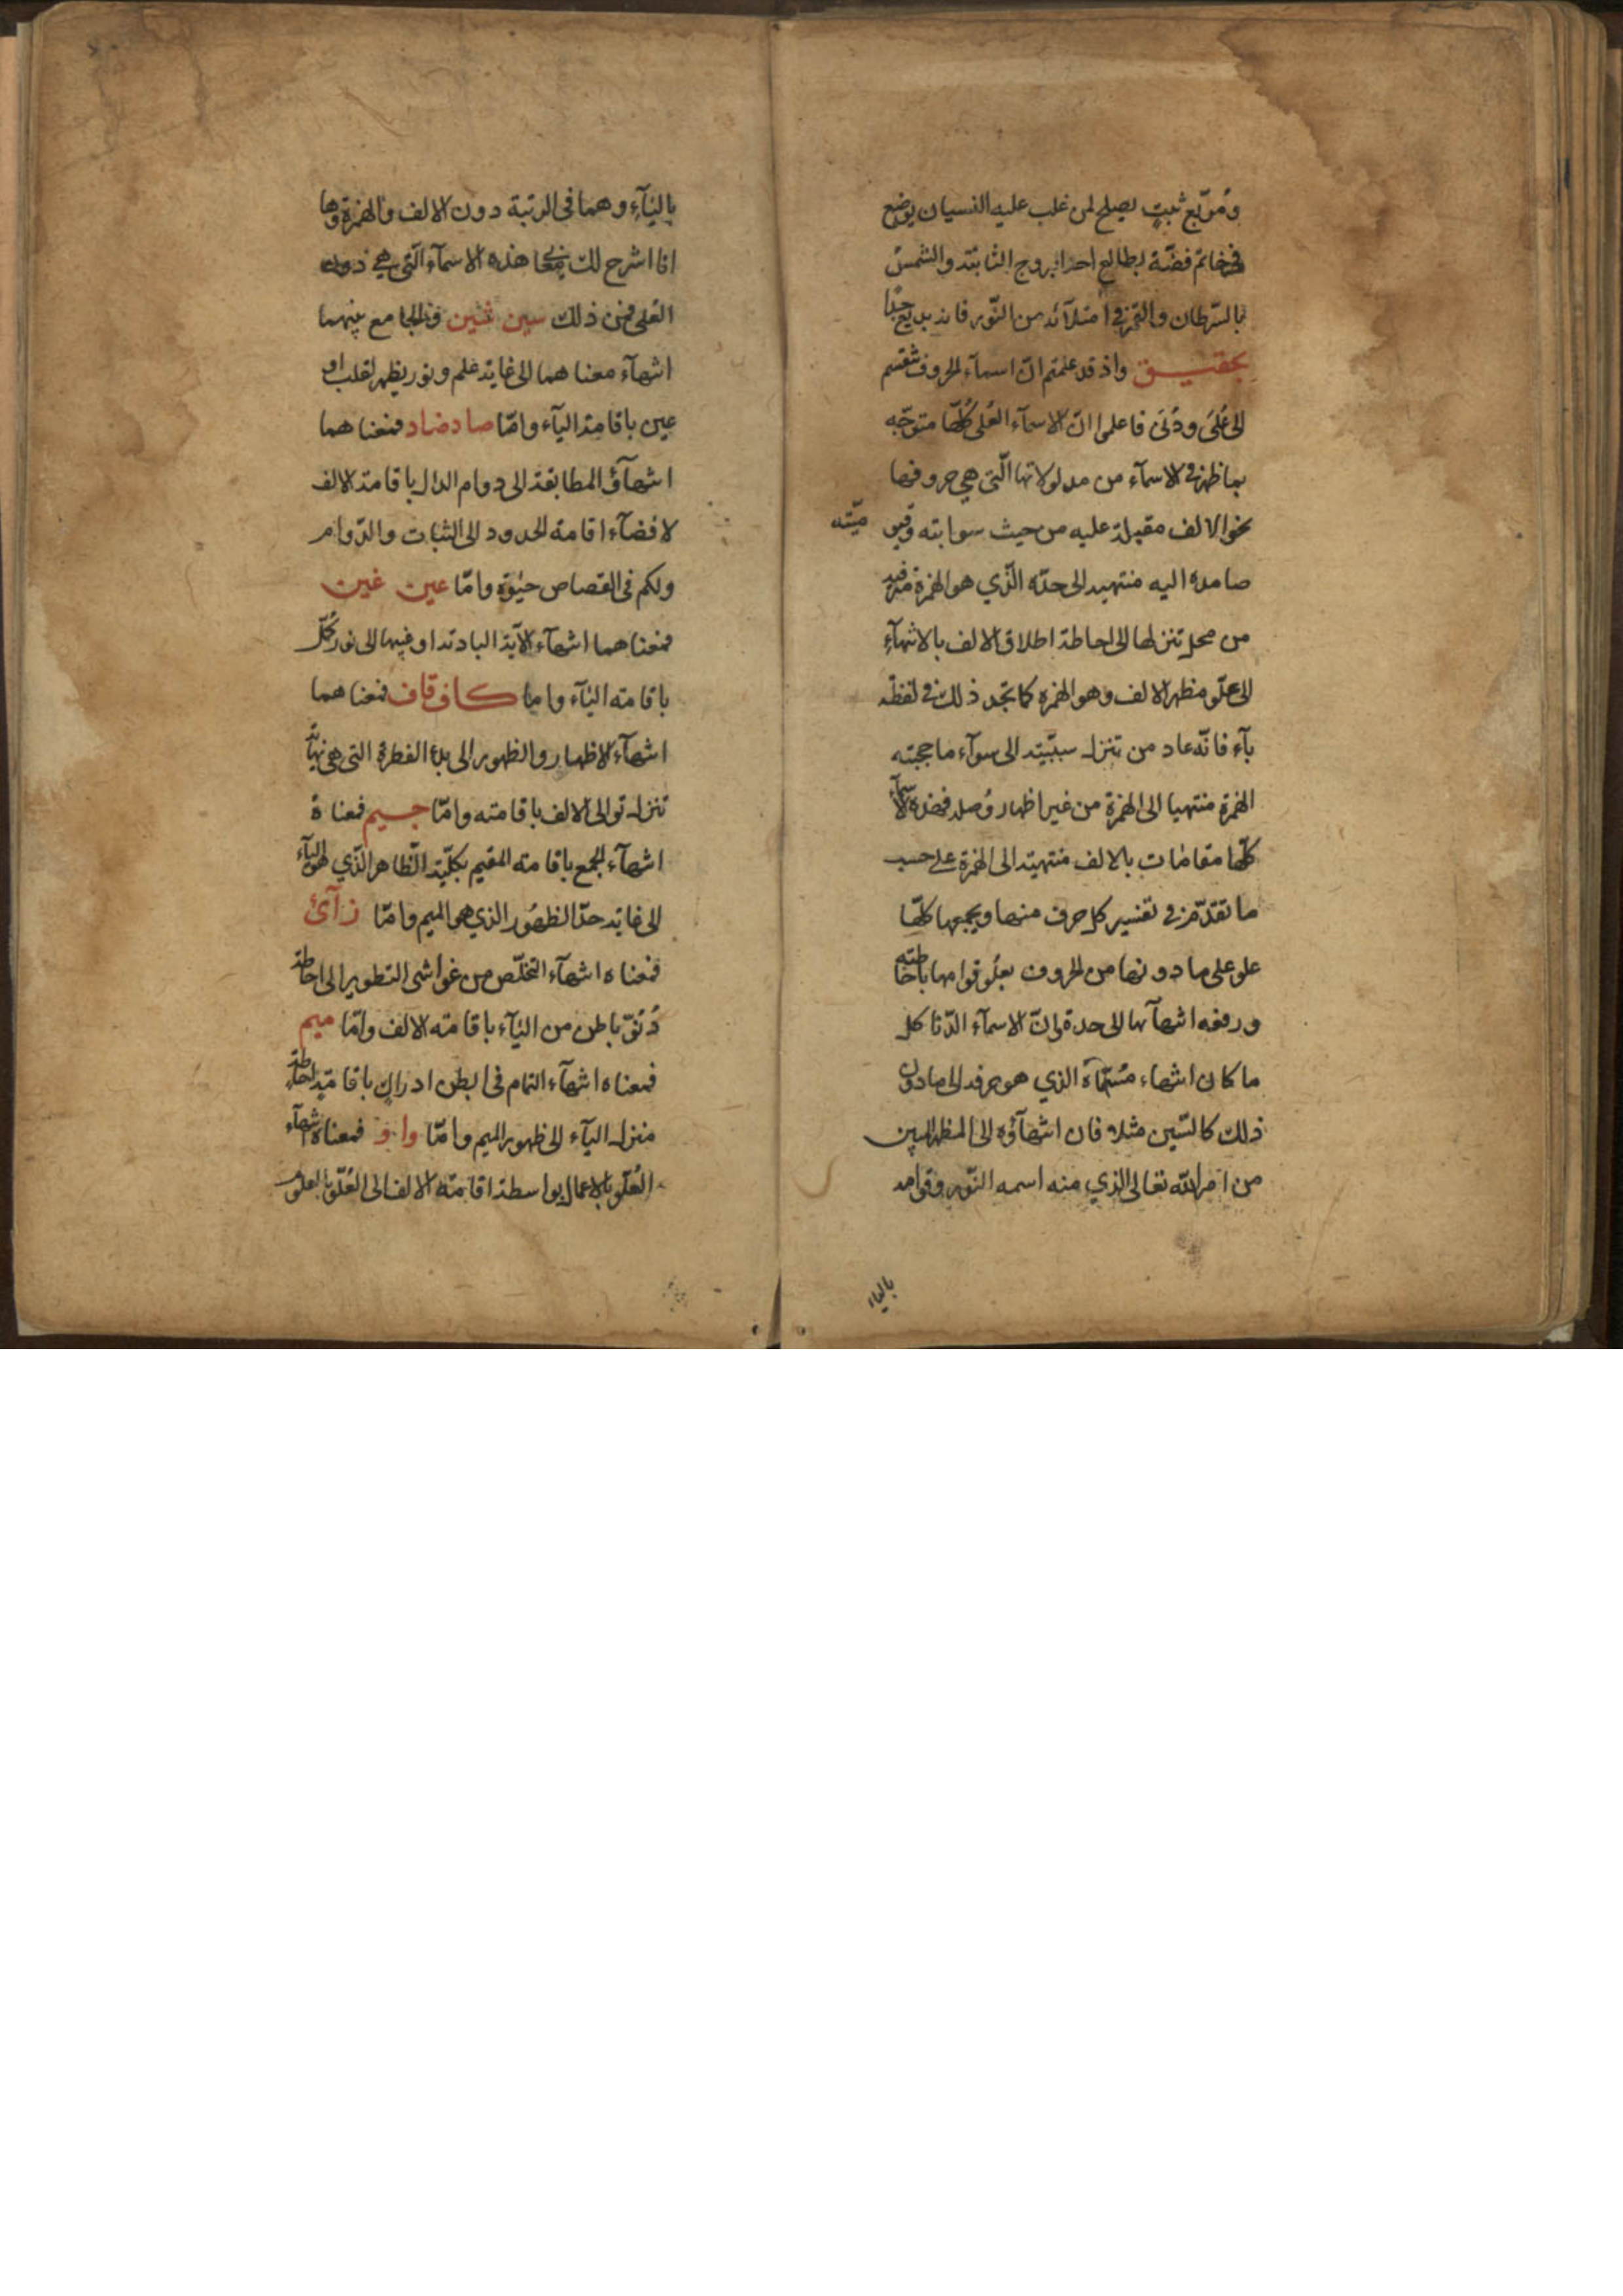 ومربع ثبت يصلح لمن غلب عليه النسيان يوضع
في خاتم فضة بطالع احد البروج الثابتة والشمس
بالسرطان والقمر في امتلائه من النور فانه بديع جدا
تحقيق واذ قد علمتم ان اسماء الحروف تنقسم
الى على ودنى فاعلموا ان الاسماء العلى كلها متوجهه
بما ظهر في الاسماء من مدلولاتها التي هي حروفها
نحو الالف مقبلة عليه من حيث سوابته
صامدة اليه منتهيه الى حده الذي هو الهمزة
من محل تنزلها الى احاطة اطلاق الالف بالانتهآء
الى علو مظهر الالف وهو الهمزه كما تجد ذلك في لفظه
بآء فانه عاد من تنزل سببيته الى سوآء ما حجبته
الهمزة منتهيا الى الهمزة من غير اظهار وصله فهذه الاسمآء
كلها مقامات بالالف منتهية الى الهمزة على حسب
ما تقدم في تفسير كل حرف منها ويجمعها كلها
علو على ما دونها من الحروف بعلو قوامها باحاطته
ورفعه انتهآئها الى حدة وان الاسمآء الدنا كل
ما كان انتهاء مسماه الذي هو حرفه الى ما دون
ذلك كالسين مثلا فان انتهآؤه الى المظهر المبين
من امر الله تعالى الذي منه اسمه النور وقوامه
بالياء
بالياء وهما في الرتبة دون الالف والهمزة وها
انا اشرح لك معنى هذه الاسمآء التي هي دون
العلى فمن ذلك سين شين فالجامع بينهما
انتهآء معناهما الى غاية علم ونور يظهر لقلب او
عين باقامة اليآء واما صاد ضاد فمعناهما
انتهآؤ المطابقة الى دوام الدال باقامة الالف
لافضآء اقامة الحدود الى الثبات والدوام
ولكم في القصاص حيوة واما عين غين
فمعناهما انتهآء الآية البادية او غيبها الى نور كل
باقامته اليآء واما كاف قاف فمعناهما
انتهآء الاظهار والظهور الى بدء الفطرة التي هي نهاية
تنزل توالي الالف باقامته واما جيم فمعناه
انتهآء الجمع باقامته المقيم بكلية الظاهر الذي هو اليآء
الى غاية حد الظهور الذي هو الميم واما زآئ
فمعناه انتهآء التخلص من غواشي التطوير الى احاطة
دنو باطن من اليآء باقامته الالف واما ميم
فمعناه انتهآء التمام في ابطن ادراك باقامته احاطة
منزل اليآء الى ظهور الميم واما واو فمعناه انتهآء
العلو بالاعمال بواسطة اقامته الالف الى العلو بالعلو